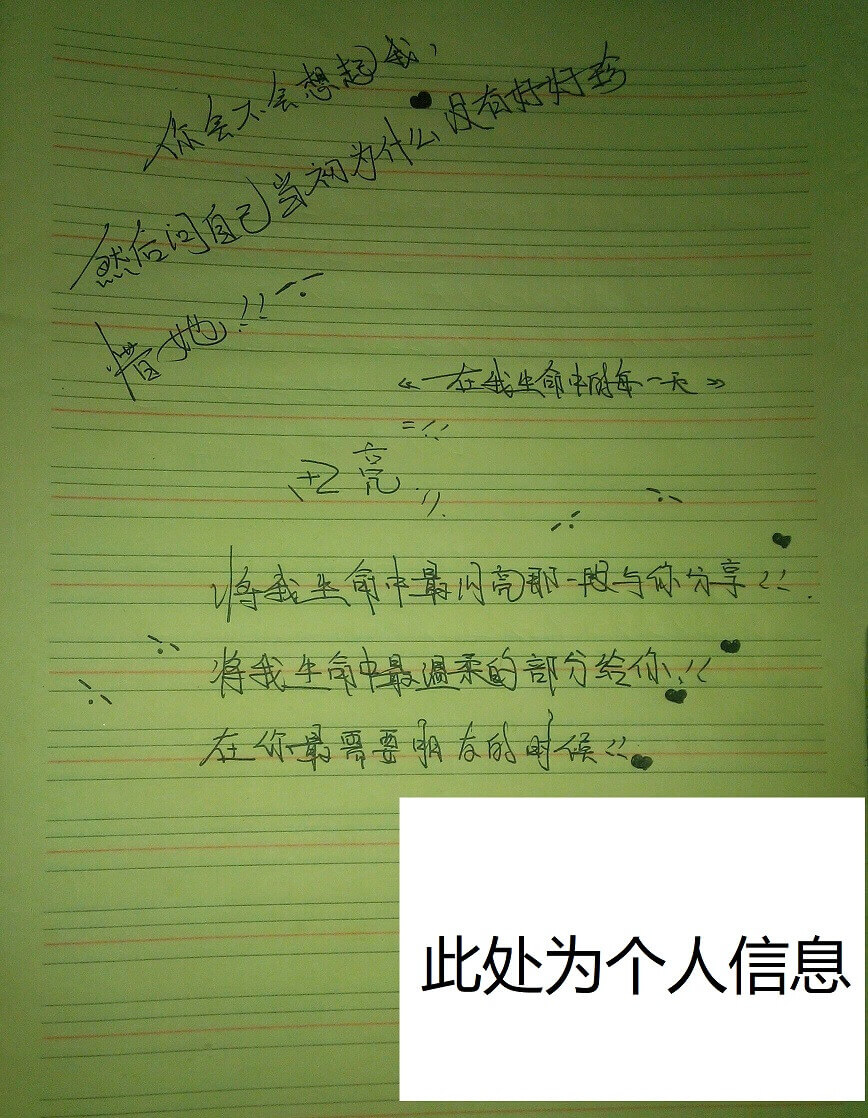 你会不会想起我,
然后问自己当初为什么没有好好珍
惜她!!
《在我生命中的每一天》
亮
将我生命中最闪亮那一段与你分享!!
将我生命中最温柔的部分给你!!
在你最需要朋友的时候!!
此处为个人信息